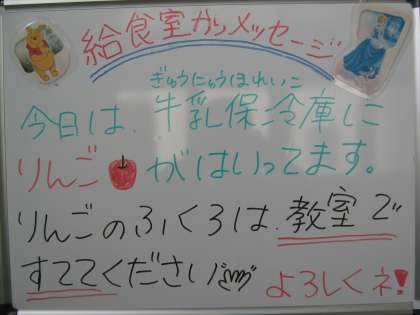 給食室からメッセージ
ぎゅうにゅうほれいこ
今日は、牛乳保冷庫に
りんごがはいってます。
りんごのふくろは、教室で
すててください
よろしくネ!